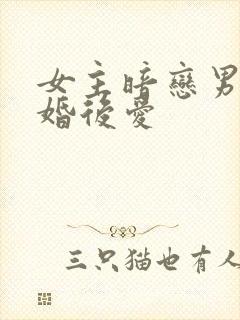 女主暗戀男
婚後愛
三只猫也有人